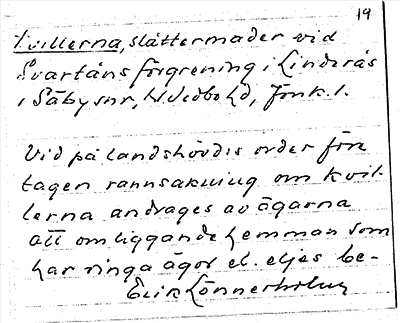 19
Kvillerna, slåttermader vid
Svartåns förgrening i Linderås
i Säby snr, N. Vedbo hd, Jönk. l.
Vid på landshövdis order före
tagen rannsakning om Kvil-
lerna andrages av ägarna
att omliggande hemman som
har ringa ägor el. eljes be-
Erik Lönnerholm